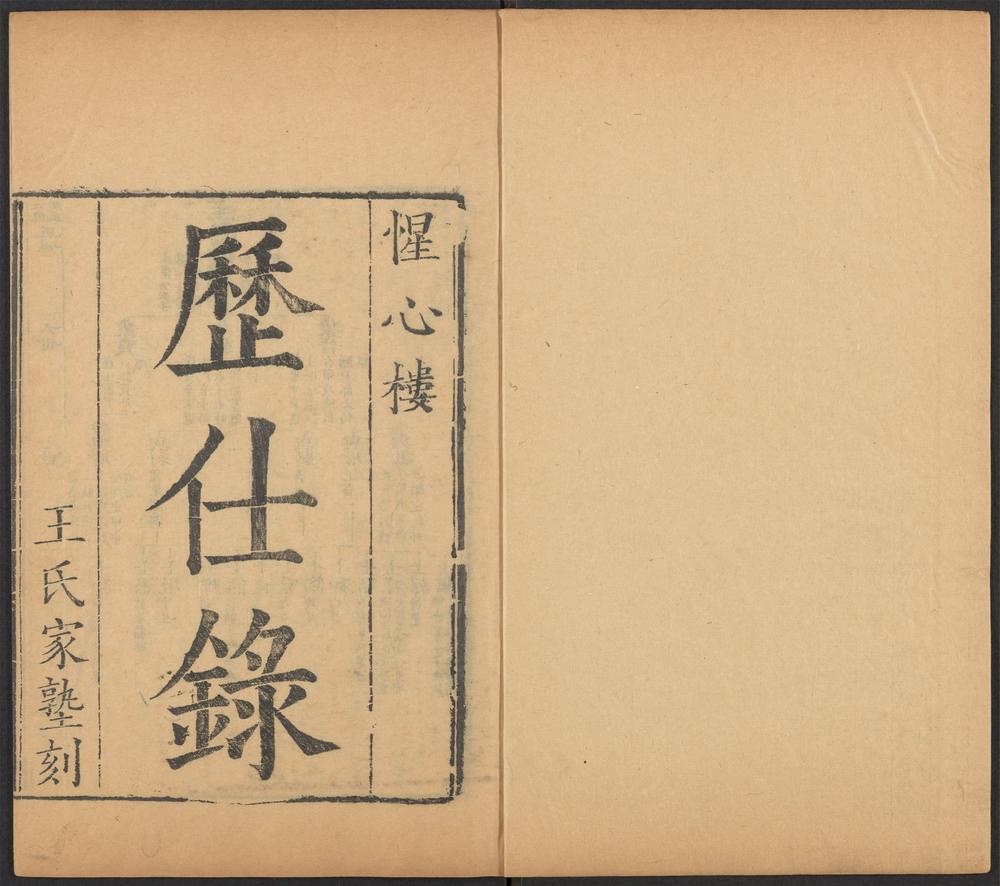 惺心樓
歷仕錄
王氏家塾刻